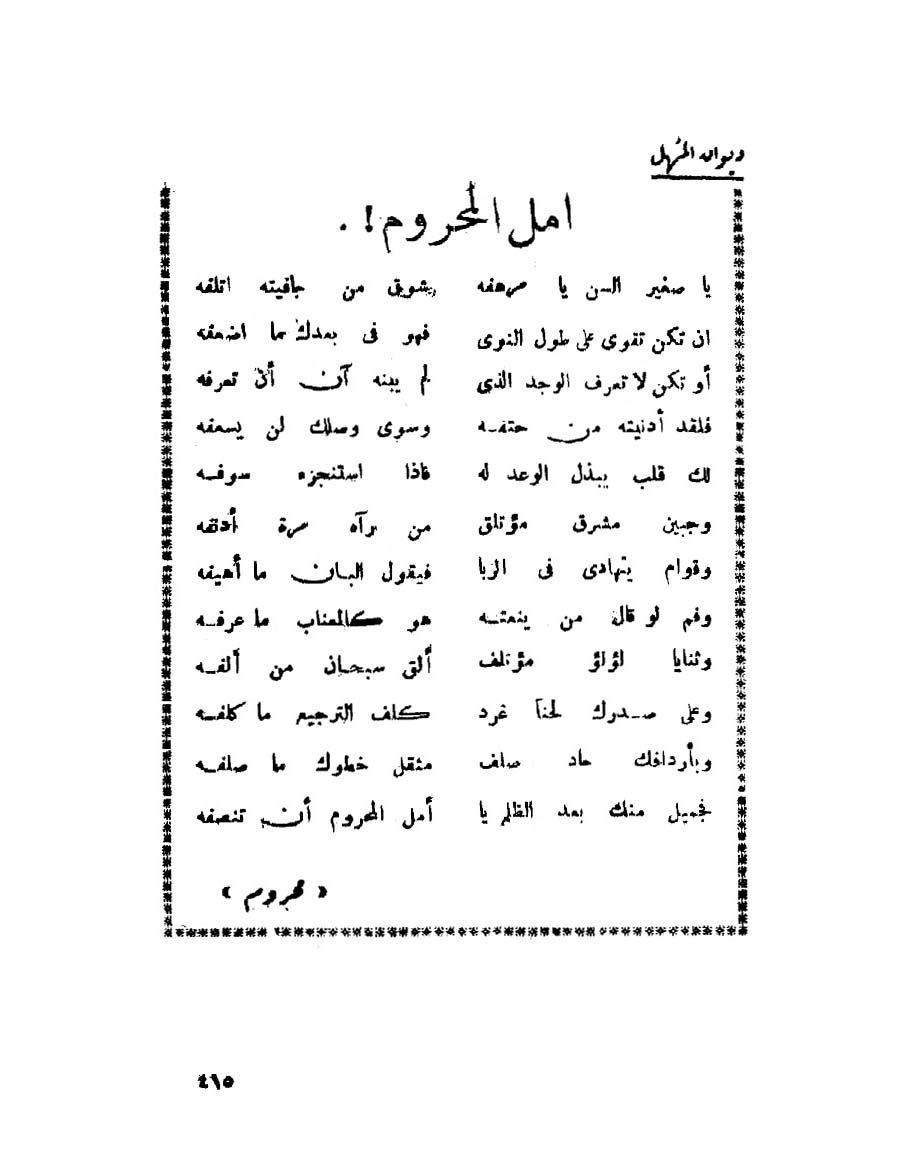 ديوان المنهل
امل المحروم! .
يا صغير السن يا مرهفه يشوق من جافيته اتلفه
ان تكن تقوى على طول النوى فهو فى بعدك ما اضعفه
أو تكن لا تعرف الوجد الذي لم يبنه آن أن تعرفه
فلقد أدنيته من حتفه وسوى وصلك لن يسعفه
لك قلب يبذل الوعد له فاذا استنجزه سوفه
وجبين مشرق مؤتلق من رآه مرة
وقوام يتهادى فى الربا فيقول البان ما أهيفه
وفم لو قال من ينعته هو كالعناب ما عرفه
وثنايا لؤلؤ مؤتلف ألق سبحان من ألفه
وعلى صدرك لحنا غرد كلف الترجيع ما كلفه
وبأردافك حاد صلف مثقل خطوك ما صلفه
فجميل منك بعد الظلم يا أمل المحروم أن تنصفه
« محروم »
٤٦٥